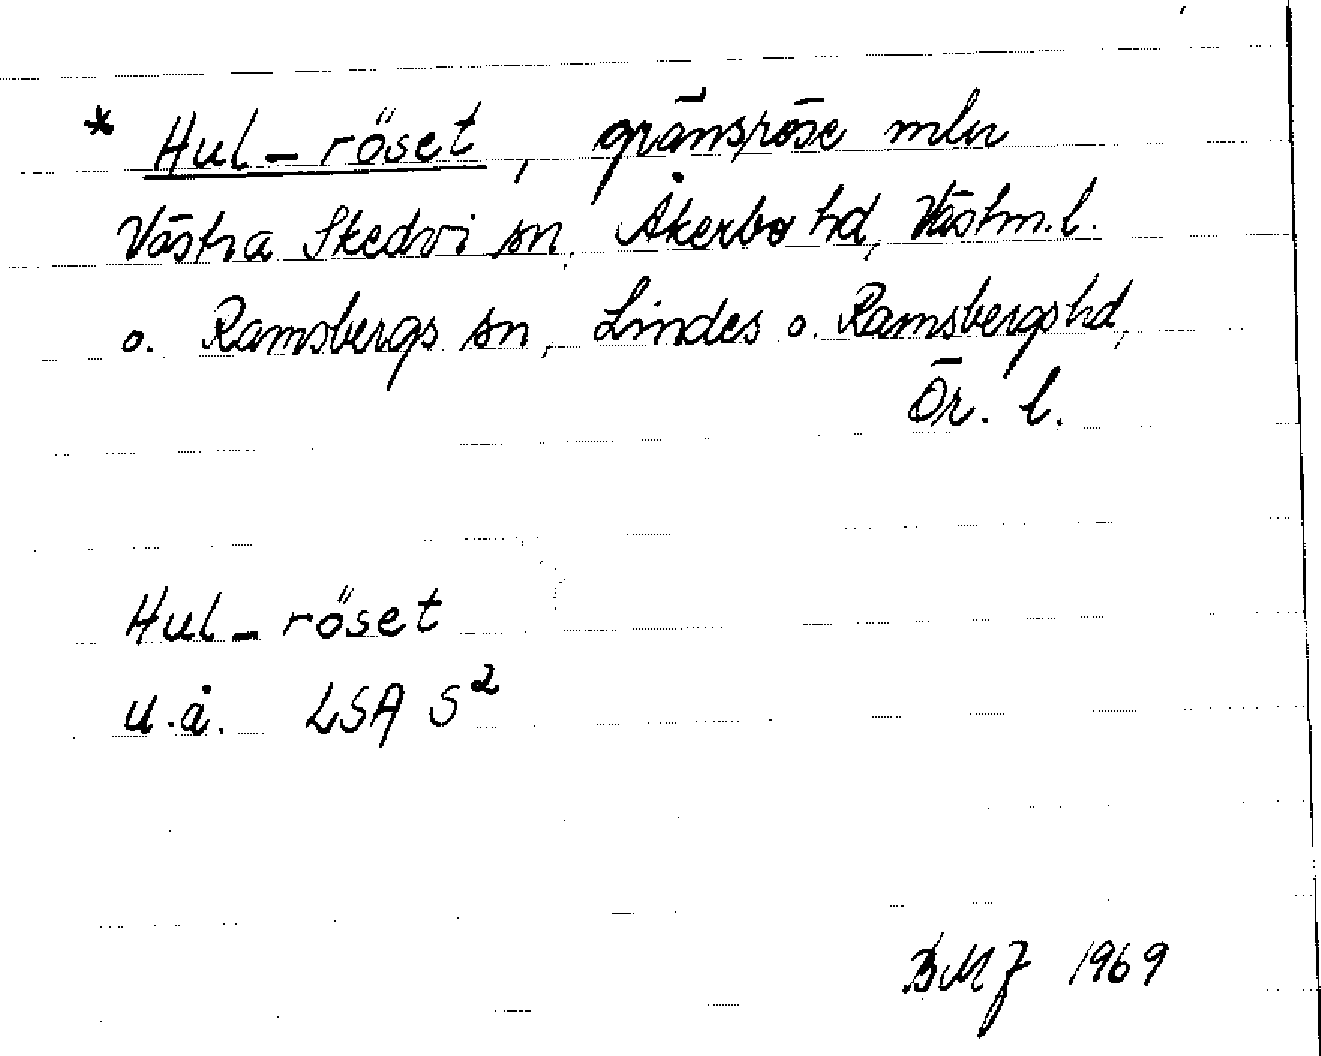 * Hul-röset, gränsröse mln
Västra Skedvi sn, Åkerbo hd, Västm. l.
o. Ramsbergs sn, Lindes o. Ramsbergs hd,
Ör. l.
Hul-röset
u.å. LSA S²
BMJ 1969